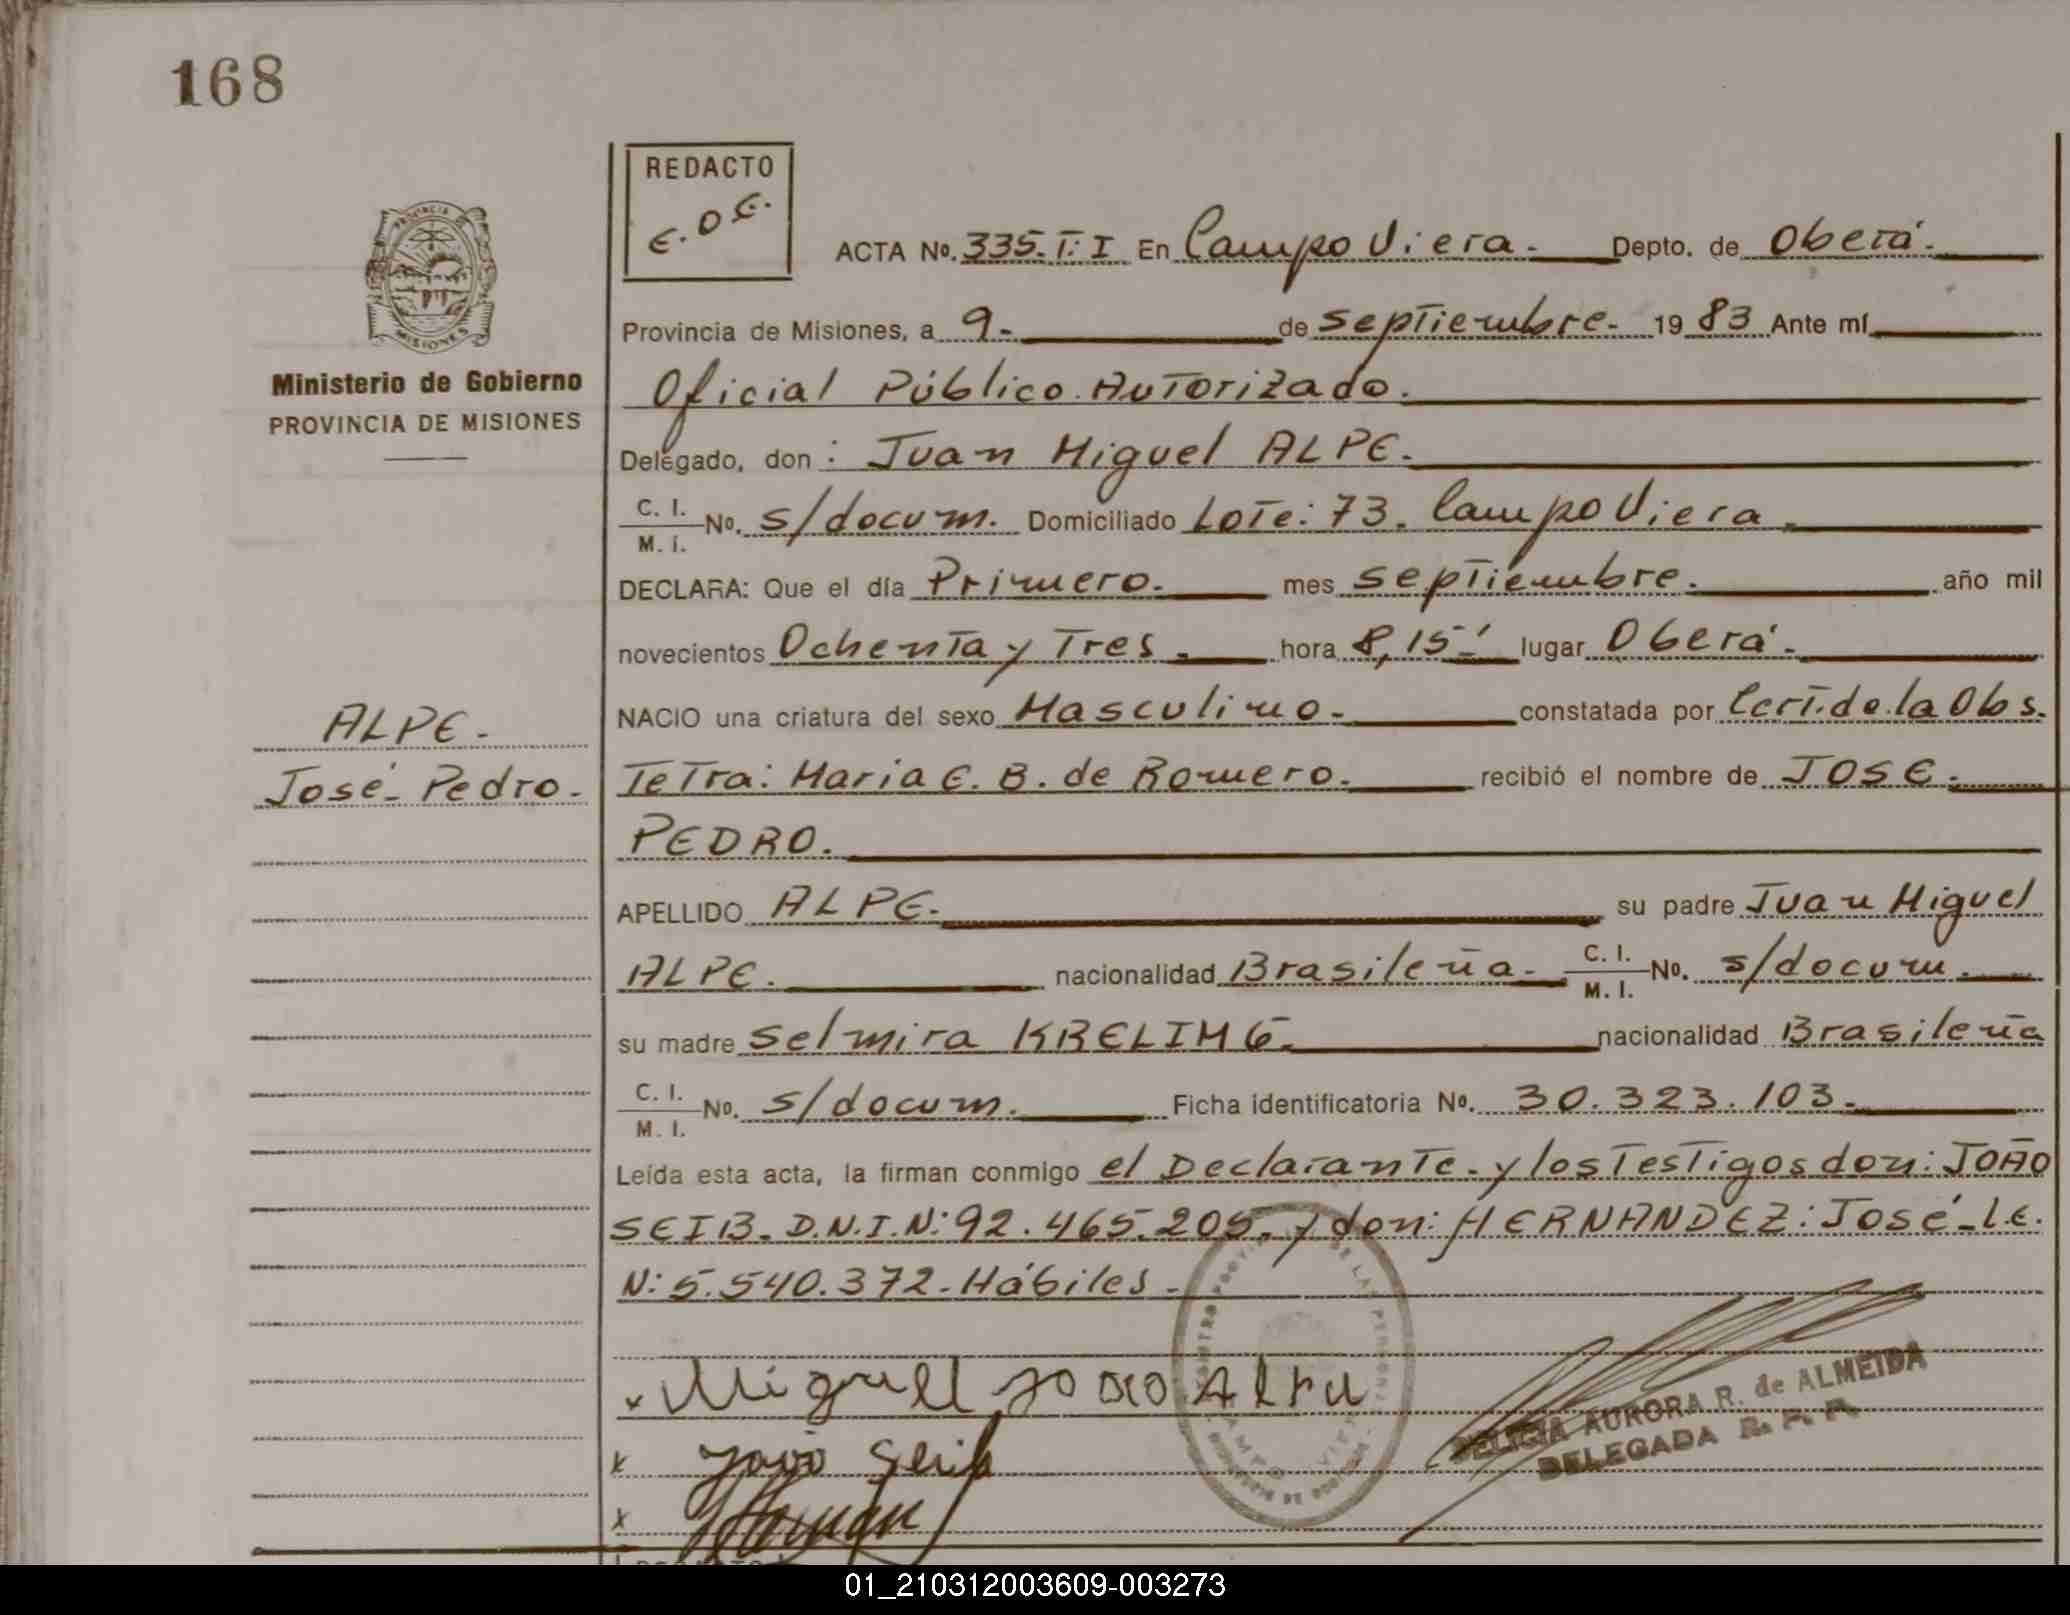 168
REDACTO
E.D.E.
ACTA No. 335. T: I En Campo Viera. Depto. de Oberá.
PROVINCIA
MISIONES
Provincia de Misiones, a 9. de septiembre. 1983 Ante mí
Ministerio de Gobierno
PROVINCIA DE MISIONES
Oficial Público Autorizado.
Delegado, don: Juan Miguel ALPE.
C. I.
M. I. No. s/docum. Domiciliado Lote: 73. Campo Viera
DECLARA: Que el día Primero. mes septiembre. año mil
novecientos Ochenta y Tres. hora 8,15' lugar Oberá.
NACIO una criatura del sexo Masculino. constatada por Cert. de la Obs.
ALPE.
José Pedro.
Tetra: Maria E. B. de Romero. recibió el nombre de JOSE.
PEDRO.
APELLIDO ALPE. su padre Juan Miguel
ALPE. nacionalidad Brasileña. C. I.
M. I. No. s/docum.
su madre Selmira KRELIMG. nacionalidad Brasileña
C. I.
M. I. No. s/docum. Ficha identificatoria No. 30.323.103.
Leída esta acta, la firman conmigo el Declarante. y los Testigos don: JOÃO
SEIB. D.N.I.N: 92.465.205. y don: HERNANDEZ: José - L.E.
N: 5.540.372. Hábiles.
x Miguell João Alpe
x João Seib
x
DELICIA AURORA R. de ALMEIDA
DELEGADA R. P. P.
01_210312003609-003273